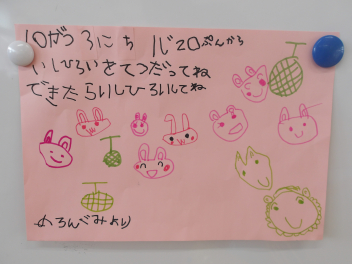 10がつ 3にち 1じ20ぷんから
いしひろいをてつだってね
できたらいしひろいしてね
めろんぐみより